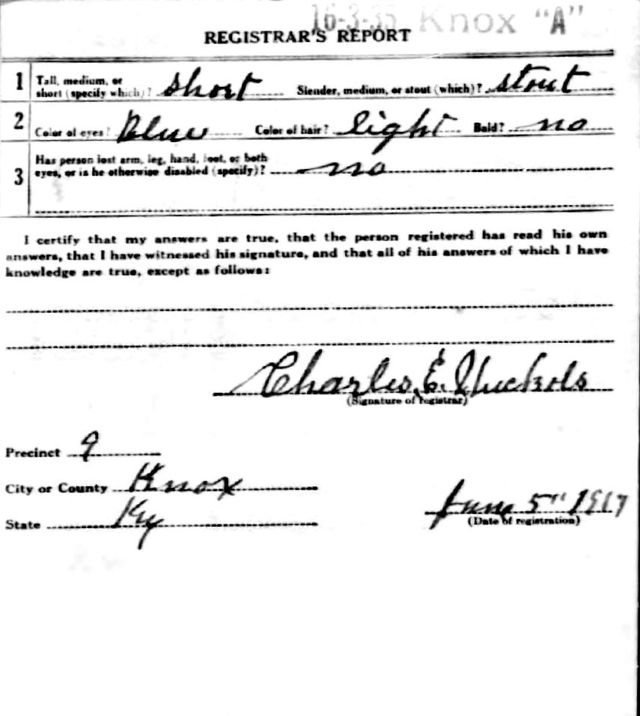 16-3-35 Knox "A"
REGISTRAR'S REPORT
1 Tall, medium, or short (specify which)? short Slender, medium, or stout (which)? stout
2 Color of eyes? Blue Color of hair? light Bald? no
3 Has person lost arm, leg, hand, foot, or both eyes, or is he otherwise disabled (specify)? no
I certify that my answers are true, that the person registered has read his own
answers, that I have witnessed his signature, and that all of his answers of which I have
knowledge are true, except as follows:
Charles E. Nuckols
(Signature of registrar)
Precinct 9
City or County Knox
State Ky
June 5th 1917
(Date of registration)